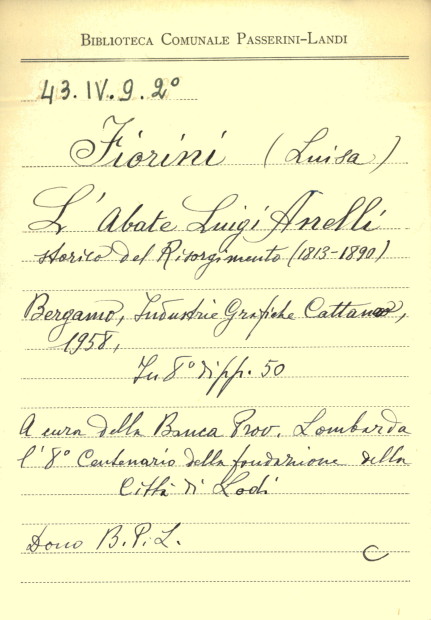 BIBLIOTECA COMUNALE PASSERINI-LANDI
43.IV.9.2°
Fiorini (Luisa)
L'Abate Luigi Anelli
storico del Risorgimento (1813-1890)
Bergamo, Industrie Grafiche Cattaneo,
1958,
In 8° di pp. 50
A cura della Banca Prov. Lombarda
l'8° Centenario della fondazione della
Città di Lodi
Dono B.P.L.
C